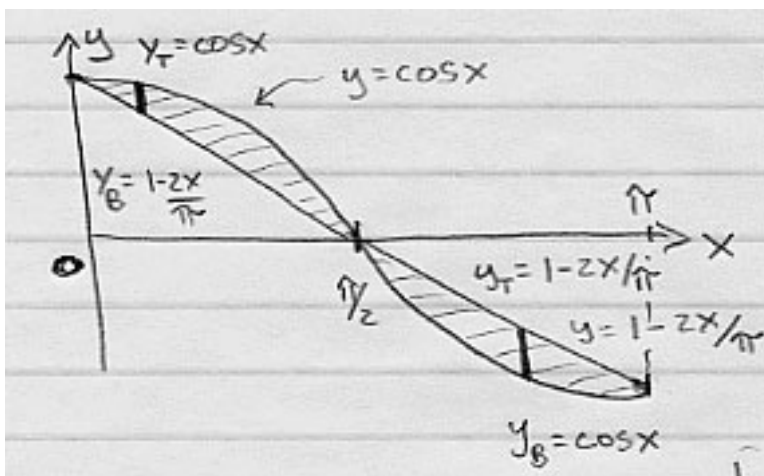 y
y_T = cosx
y = cosx
y_B = 1-2x/π
π
x
O
π/2
y_T = 1-2x/π
y = 1-2x/π
y_B = cosx